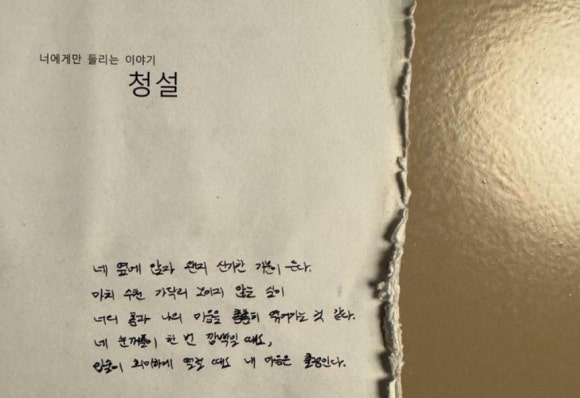 너에게만 들리는 이야기
청설
네 옆에 앉자 왠지 신기한 기분이 든다.
마치 수천 가닥의 보이지 않는 실이
너의 몸과 나의 마음을 촘촘히 엮어가는 것 같다.
네 눈꺼풀이 한 번 깜빡일 때도,
입술이 희미하게 떨릴 때도 내 마음은 출렁인다.